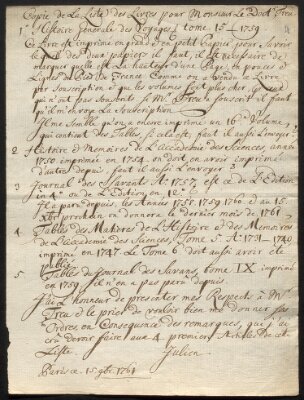 Copie de la Liste des Livres pour Monsieur Le Doct. Treu
1 Histoire Generale des Voyages tome 15 = 1759
Ce Livre est imprimé en grand & en petit Papier pour Savoir
lequel des deux papiers il faut, il est necessaire de
marquer quelle est La hauteur d'une Page, de pouces &
Lignes du Pied de France Comme on a vendu ce Livre
par Souscription & que les volumes sont plus cher quand
qu'on n'ont pas Souscrits, si Mr. Treu a souscrit il faut
qu'il m'envoye La Souscription
Il me semble qu'on a encore imprimé un 16e Volume,
qui contient des Tables, si cela est, faut il aussi L'envoyer
2 Histoire & Memoires de L'Accademie des Sciences, année
1750 imprimé en 1754. on doit en avoir imprimé
d'autres depuis, faut il aussi L'envoyer?
3 Journal des Savants A. 1757. est ce de L'Edition
in 4° ou de L'Edition in 12°?
Il a paru depuis, les Années 1758. 1759. 1760. & au 15
prochain on donnera le dernier mois de 1761
4 Tables des Matieres de L'Histoire & des Memoires
de L'Accademie des Sciences, Tome 5. A. 1731_1740
imprimé en 1747. Le Tome 6 doit aussi avoir été
publié
5 Tables du Journal des Savans, tome IX imprimé
en 1759. il n'en a pas paru depuis
J'ai L'honneur de presenter mes Respects à Mr.
Treu & le prier de vouloir bien me donner ses
Ordres, en Consequence des remarques, que j'ai
crû devoir faire aux 4 premiers Articles de cette
Liste
Julien
Paris ce 15. 9bre. 1761